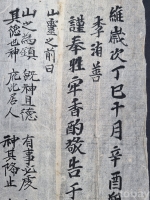 維歲次丁巳十月辛酉
李 善
謹奉牲牢香酌敬告于
山靈之前曰
山之為鎮 旣神且德 有事必虔
神 庇 居人 神其降止